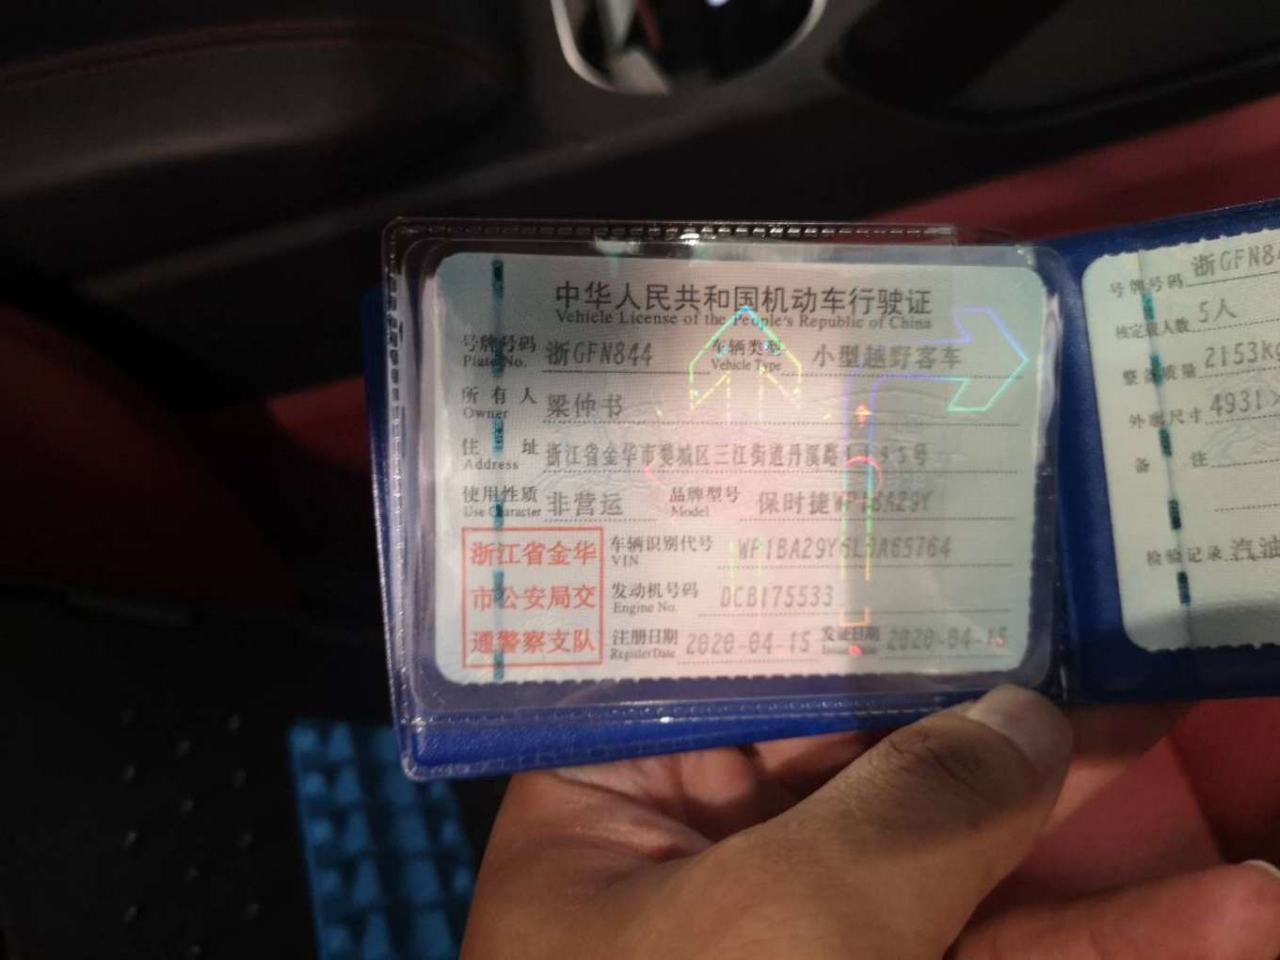 中华人民共和国机动车行驶证
Vehicle License of the People's Republic of China
号牌号码 浙GFN844 车辆类型 小型越野客车
Plate No. Vehicle Type
所有人 梁仲书
Owner
住址 浙江省金华市婺城区三江街道丹溪路
Address
使用性质 非营运 品牌型号 保时捷WP1BA29Y
Use Character Model
浙江省金华
市公安局交
通警察支队
车辆识别代号
VIN
发动机号码 DCB175533
Engine No.
注册日期 2020-04-15 发证日期 2020-04-15
Register Date
号牌号码 浙GFN84
核定载人数 5人
整备质量 2153kg
外廓尺寸 4931×
备注
检验记录 汽油